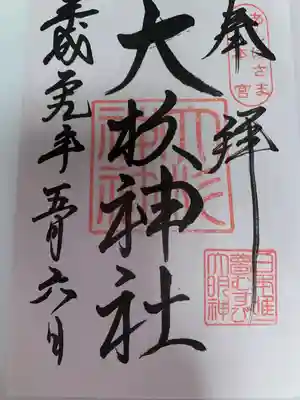 奉拝
あんばさま
総本宮
日本唯一
夢むすび
大明神
大杉神社
平成廿九年五月六日